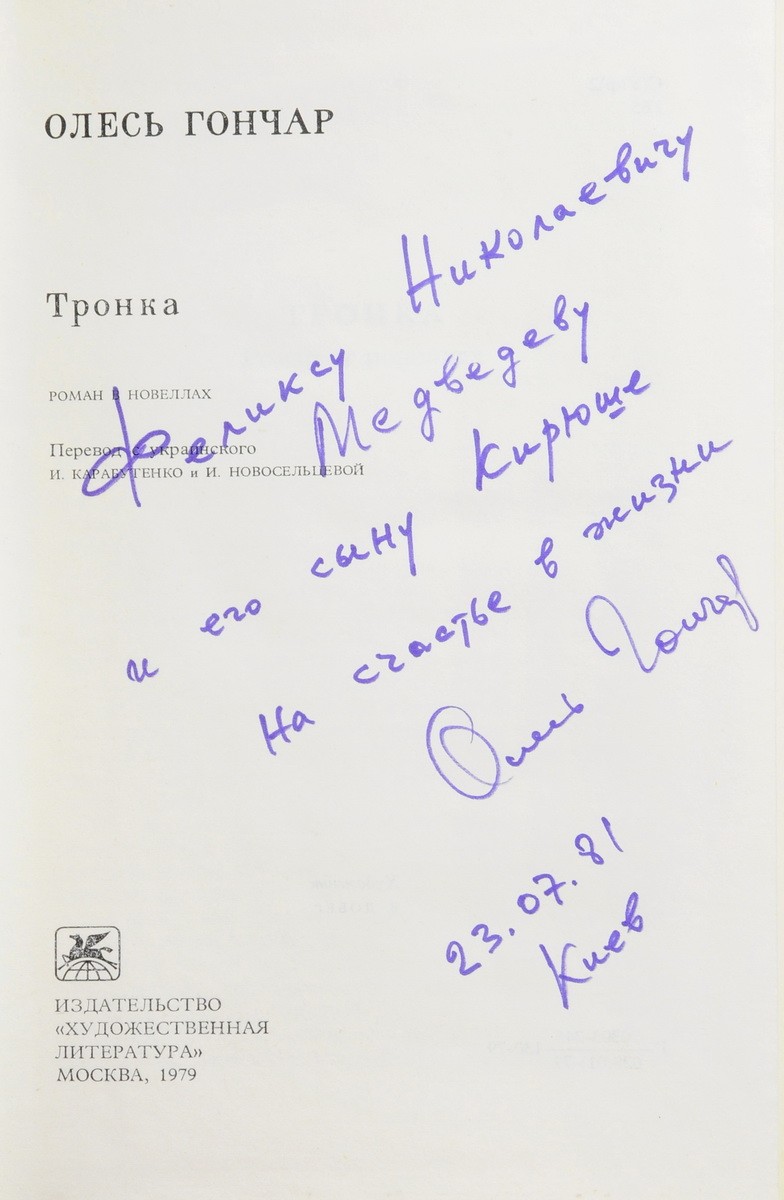 ОЛЕСЬ ГОНЧАР
Тронка
РОМАН В НОВЕЛЛАХ
Перевод с украинского
И. КАРАБУТЕНКО и И. НОВОСЕЛЬЦЕВОЙ
Феликсу Николаевичу
Медведеву
и его сыну Кирюше
На счастье в жизни
Олесь Гончар
23.07.81
Киев
ИЗДАТЕЛЬСТВО
«ХУДОЖЕСТВЕННАЯ
ЛИТЕРАТУРА»
МОСКВА, 1979